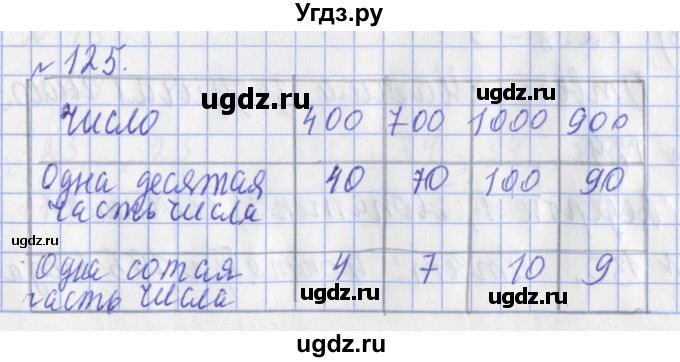 Угдз.ру
№ 125.
ugdz.ru ugdz.ru
Число 400 700 1000 900
Одна десятая 40 70 100 90
часть числа
ugdz.ru ugdz.ru
ugdz.ru
Одна сотая 4 7 10 9
часть числа
ugdz.ru ugdz.ru
ugdz.ru